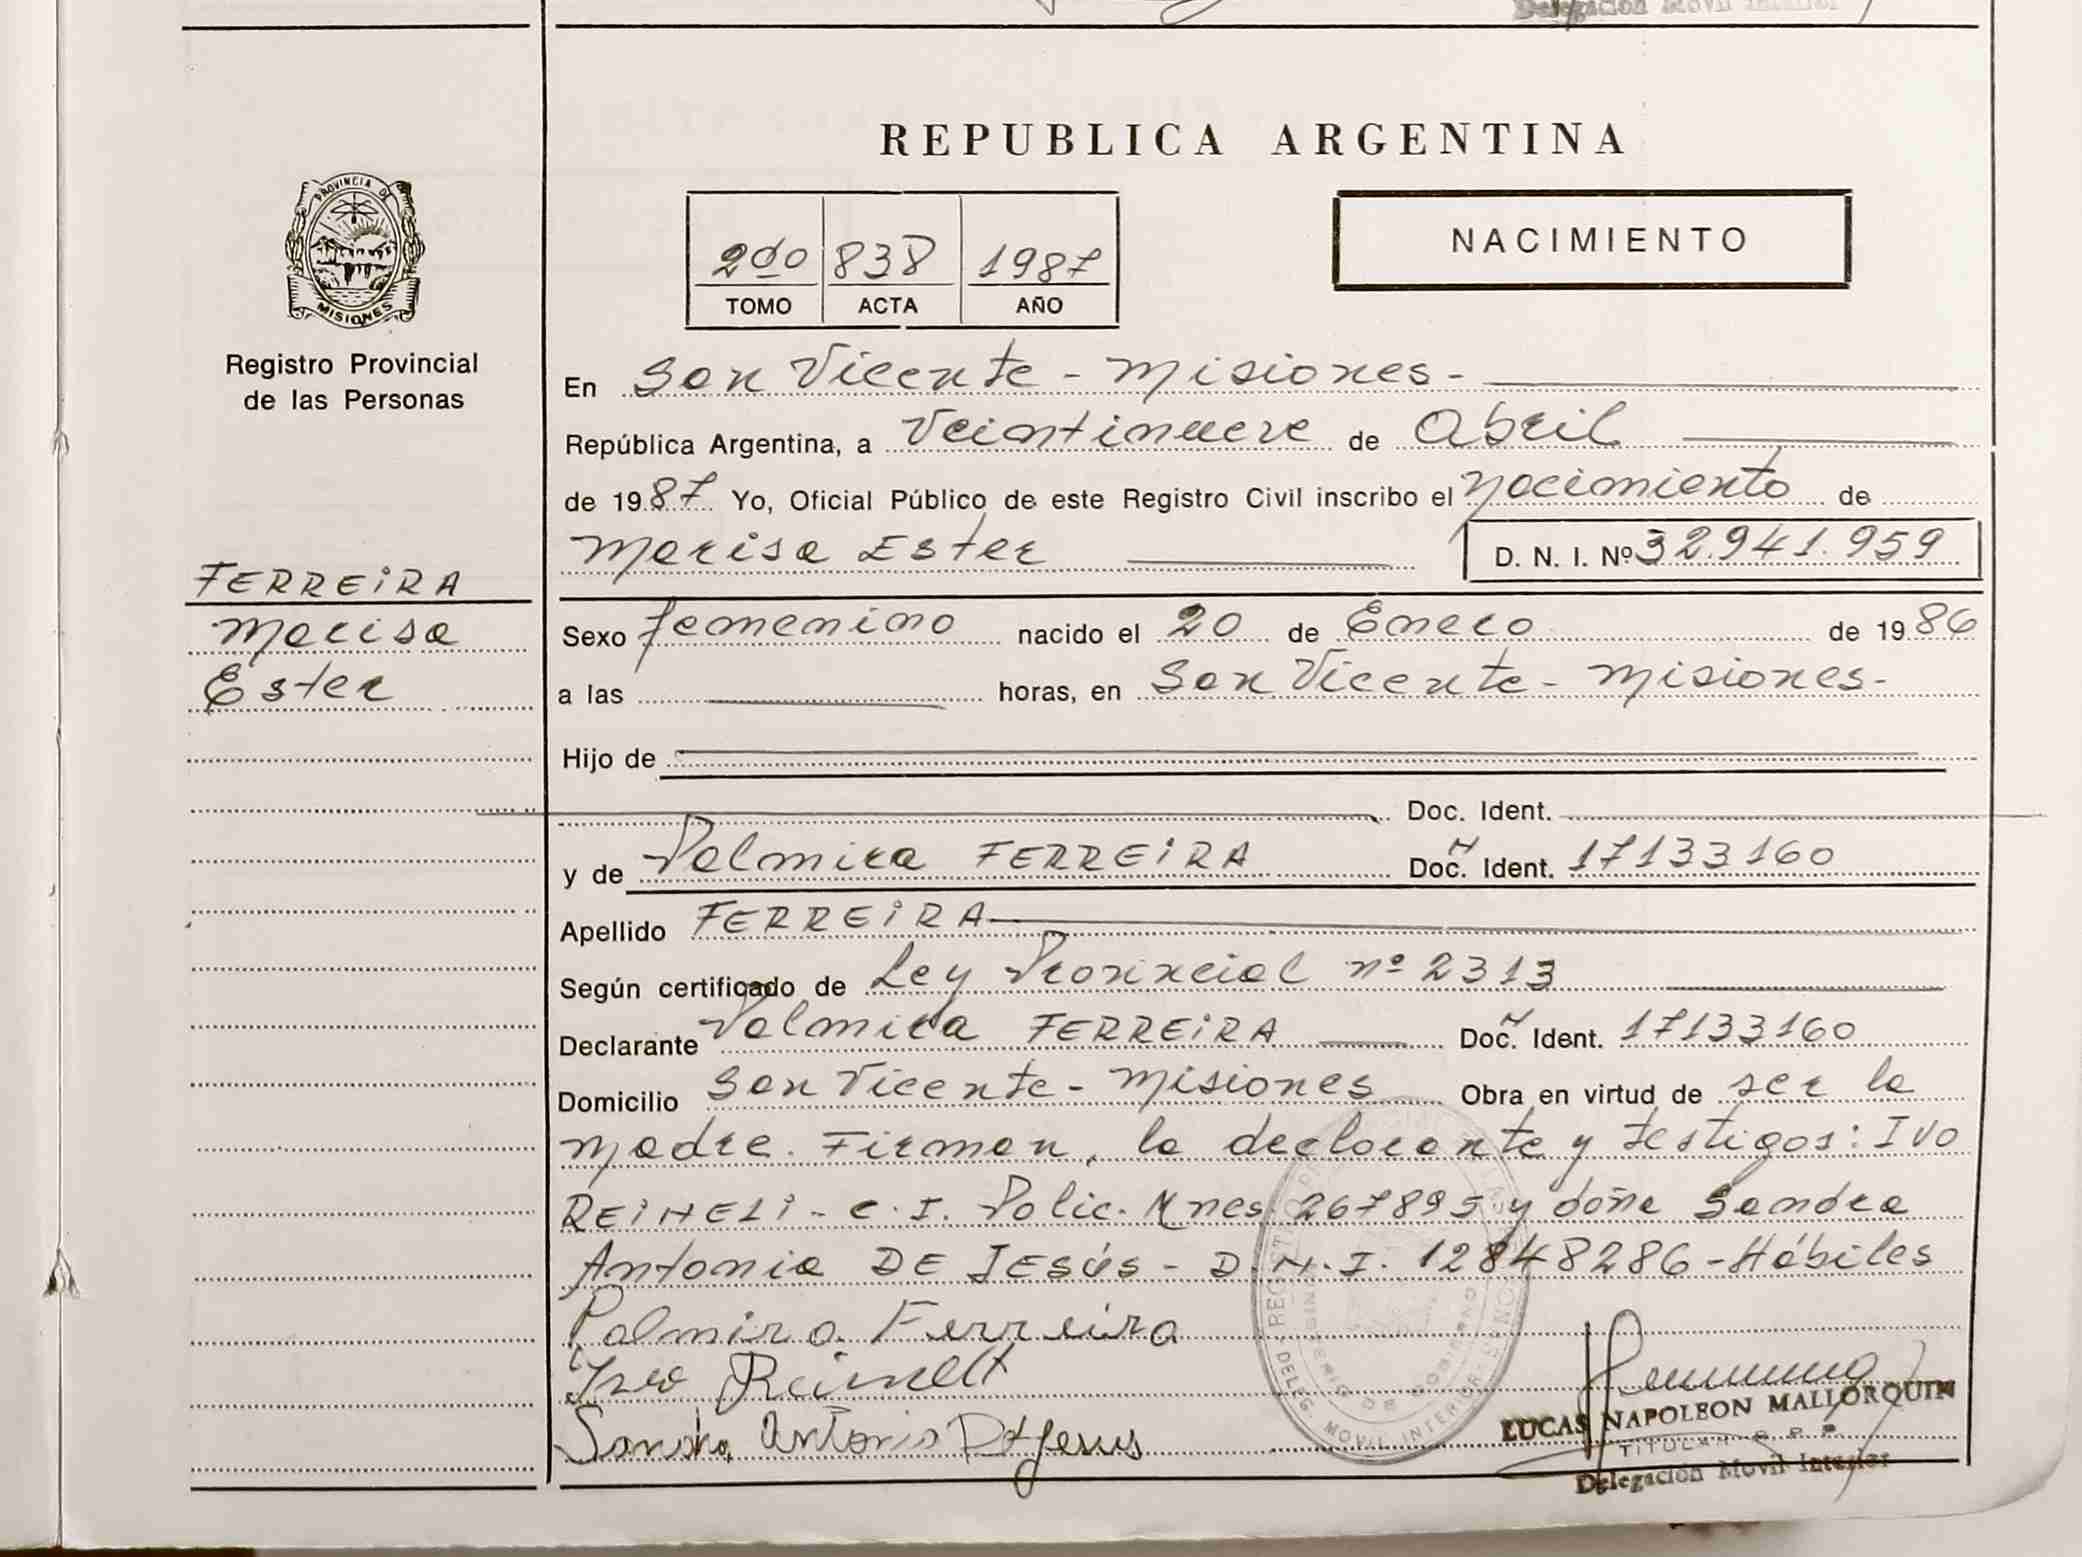 Delegación Movil Interior
REPUBLICA ARGENTINA
PROVINCIA DE
MISIONES
Registro Provincial
de las Personas
2do 838 1987
TOMO ACTA AÑO
NACIMIENTO
En San Vicente - Misiones -
República Argentina, a Veintinueve de Abril
de 1987 Yo, Oficial Público de este Registro Civil inscribo el Nacimiento de
Marisa Ester D. N. I. Nº 32.941.959
FERREIRA
Marisa
Ester
Sexo femenino nacido el 20 de Enero de 1986
a las horas, en San Vicente - Misiones -
Hijo de
Doc. Ident.
y de Palmira FERREIRA Doc. N Ident. 17133160
Apellido FERREIRA
Según certificado de Ley Provincial nº 2313
Declarante Palmira FERREIRA Doc. N Ident. 17133160
Domicilio San Vicente - Misiones Obra en virtud de ser la
Madre. Firman, la declarante y testigos: Ivo
REINELI - C. I. Polic. Mnes 267895 y doña Sandra
Antonia DE JESÚS - D.N.I. 12848286 - Hábiles
Palmira Ferreira
Ivo Reinelt
Sandra Antonia D Jesus
DELEG. MOVIL INTERIOR
LUCAS NAPOLEON MALLORQUIN
TITULAR
Delegación Movil Interior